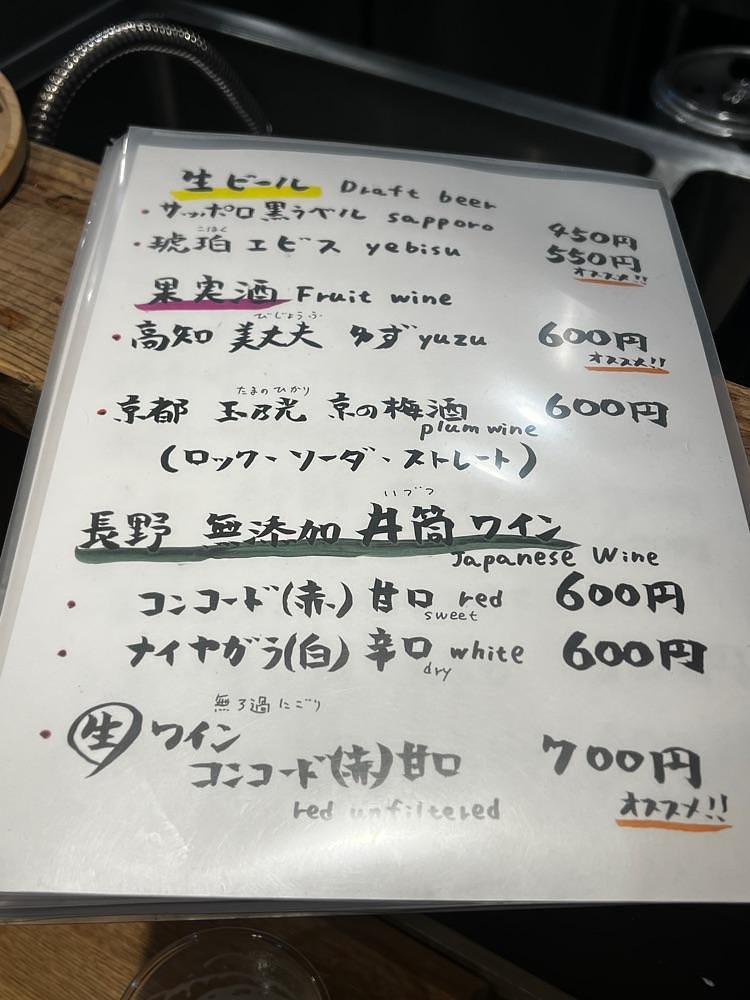 生ビール Draft beer
・サッポロ黒ラベル sapporo 450円
こはく
・琥珀エビス yebisu 550円
オススメ!!
果実酒 Fruit wine
びじょうふ
・高知 美丈夫 ゆずyuzu 600円
オススメ!!
たまのひかり
・京都 玉乃光 京の梅酒 600円
plum wine
(ロック・ソーダ・ストレート)
いづつ
長野 無添加 井筒ワイン
Japanese Wine
・コンコード(赤) 甘口 red 600円
sweet
・ナイヤガラ(白) 辛口 white 600円
dry
無ろ過にごり
・生ワイン
コンコード(赤)甘口 700円
red unfiltered オススメ!!